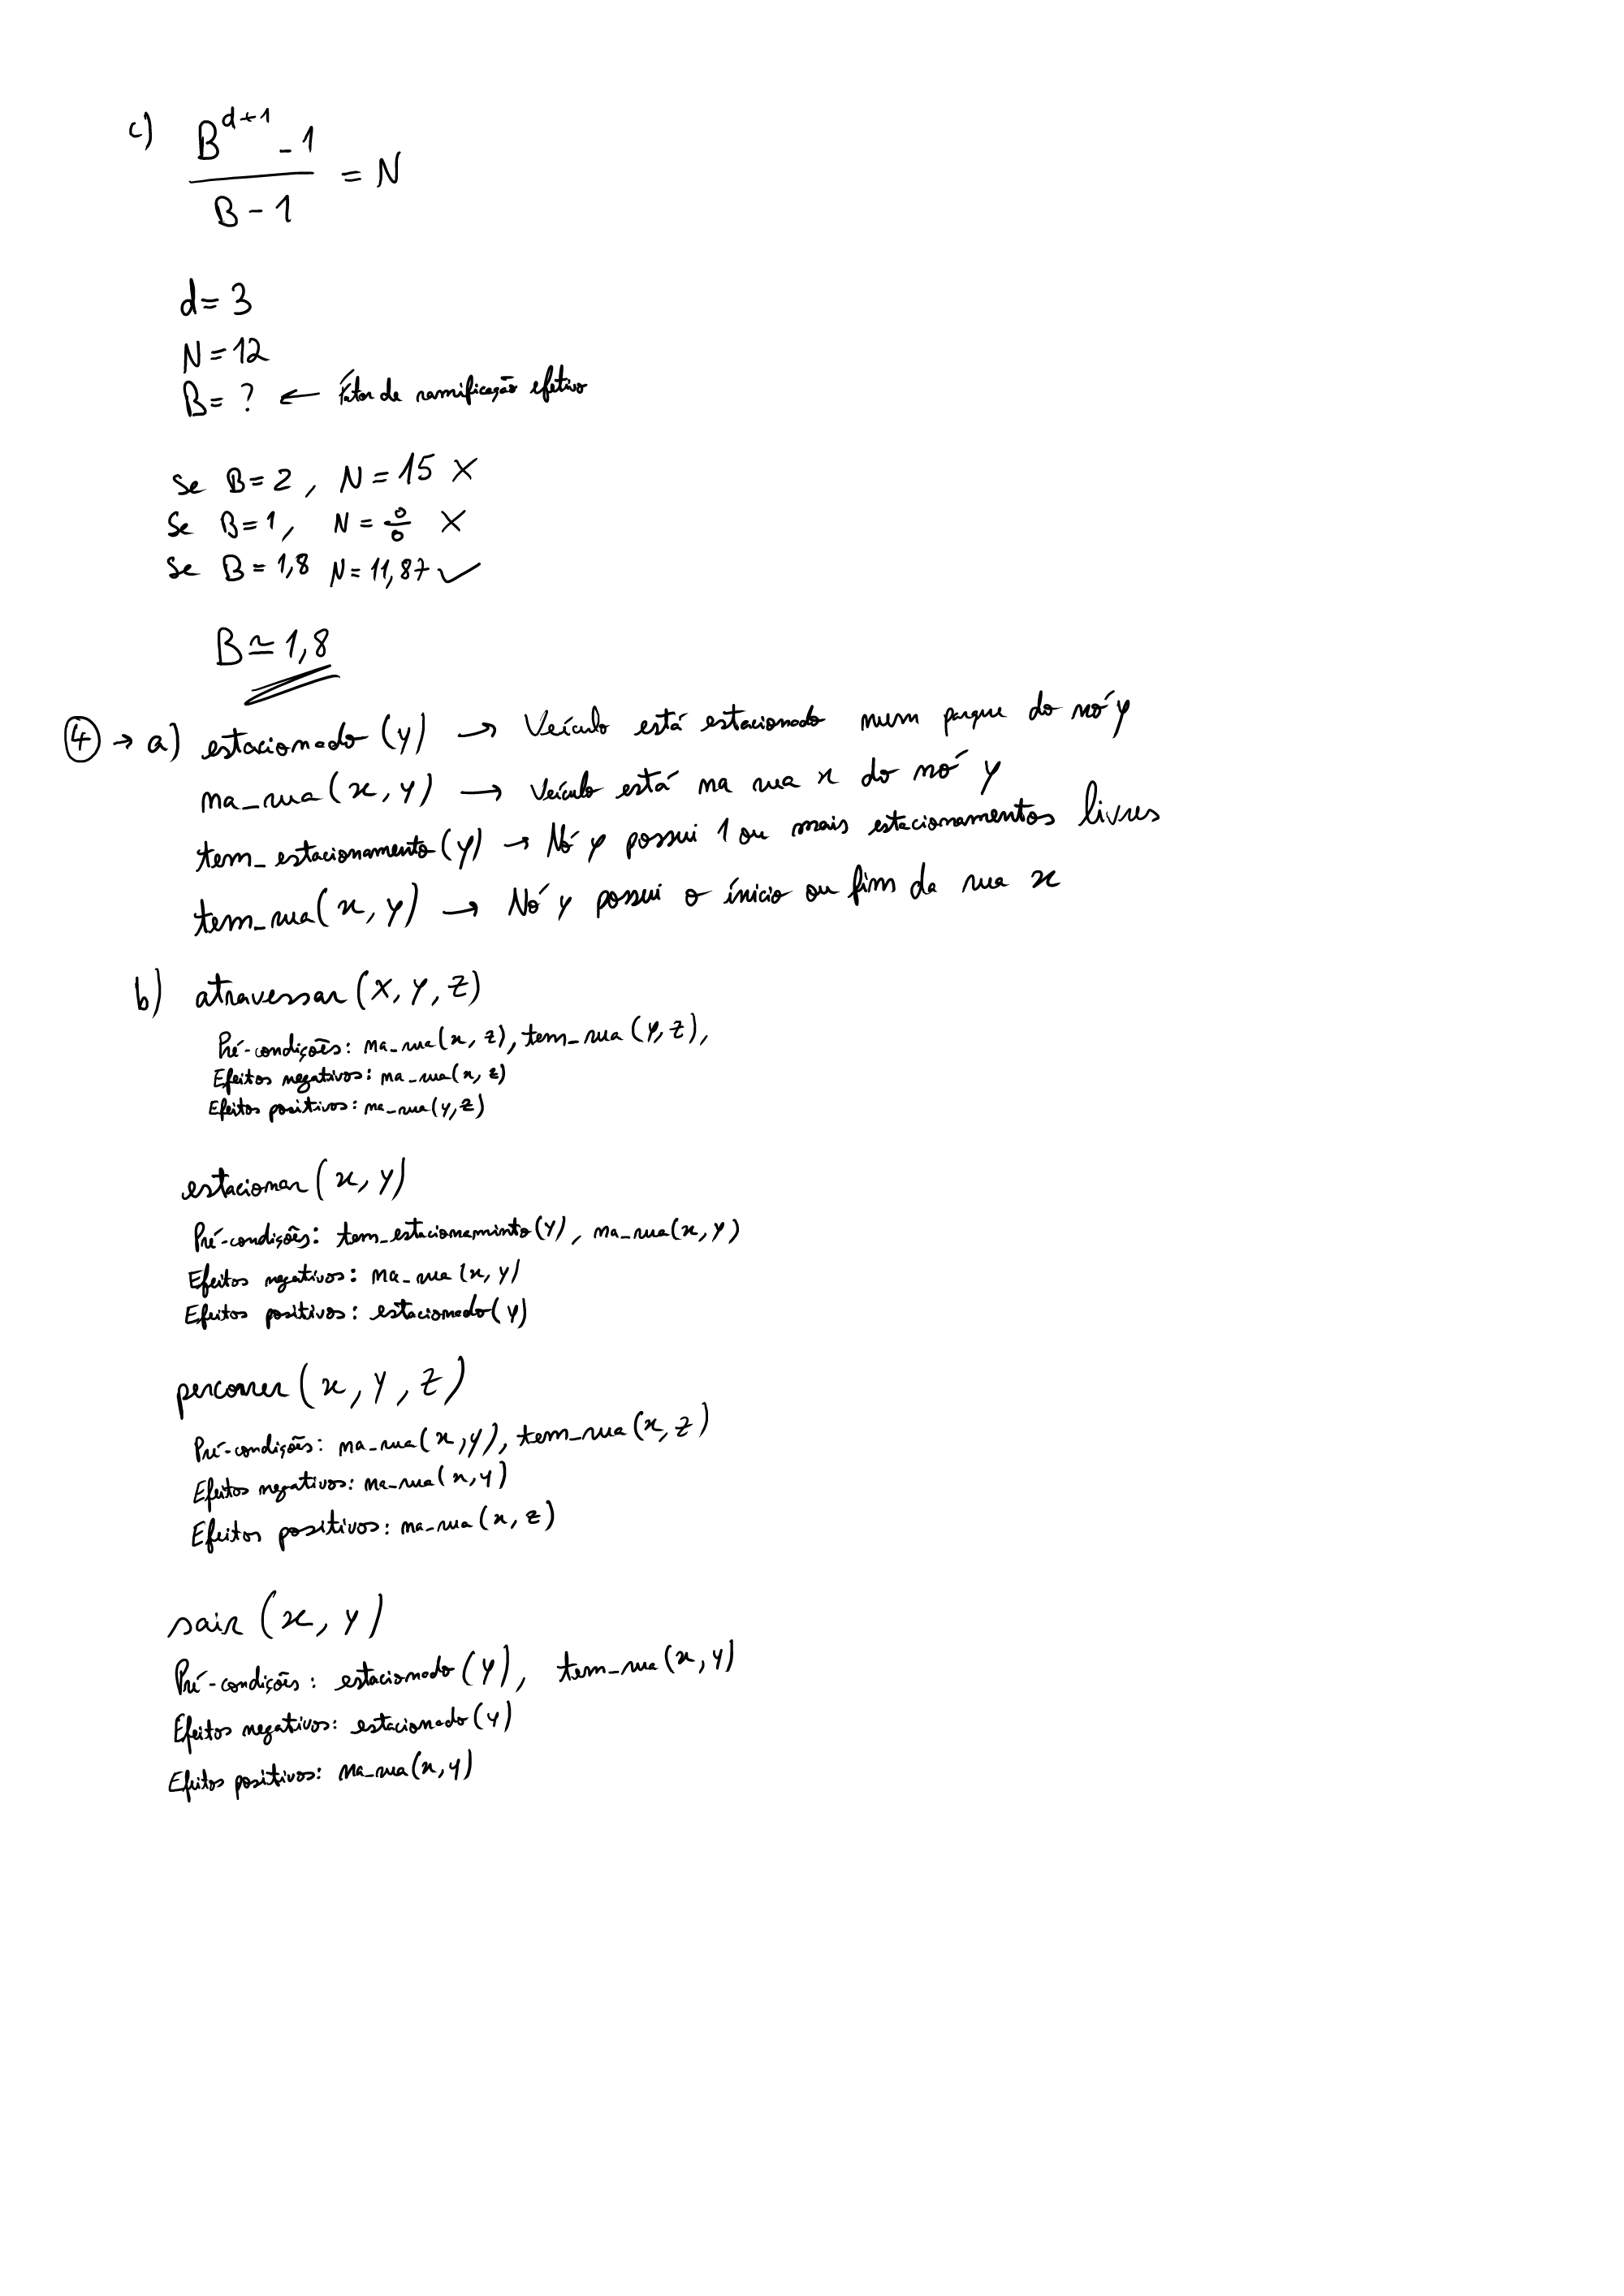 c) B^{d+1} - 1 / B - 1 = N
d = 3
N = 12
B = ? ← Fator de ramificação efetivo
Se B = 2, N = 15 ×
Se B = 1, N = 0/0 ×
Se B = 1,8 N = 11,87 ✓
B ≃ 1,8
④ → a) estacionado (y) → Veículo está estacionado num parque do nó y
na_rua (x, y) → Veículo está na rua x do nó y
tem_estacionamento (y) → Nó y possui 1 ou mais estacionamentos livres
tem_rua (x, y) → Nó y possui o ínicio ou fim da rua x
b) atravessar (X, Y, Z)
Pré-condições: na_rua (x, z), tem_rua (y, z),
Efeitos negativos: na_rua (x, z)
Efeitos positivos: na_rua (y, z)
estacionar (x, y)
Pré-condições: tem_estacionaminto (y), na_rua (x, y)
Efeitos negativos: na_rua (x, y)
Efeitos positivos: estacionado (y)
percorrer (x, y, z)
Pré-condições: na_rua (x, y), tem_rua (x, z)
Efeitos negativos: na_rua (x, y)
Efeitos positivos: na_rua (x, z)
sair (x, y)
Pré-condições: estacionado (y), tem_rua (x, y)
Efeitos negativos: estacionado (y)
Efeitos positivos: na_rua (x, y)